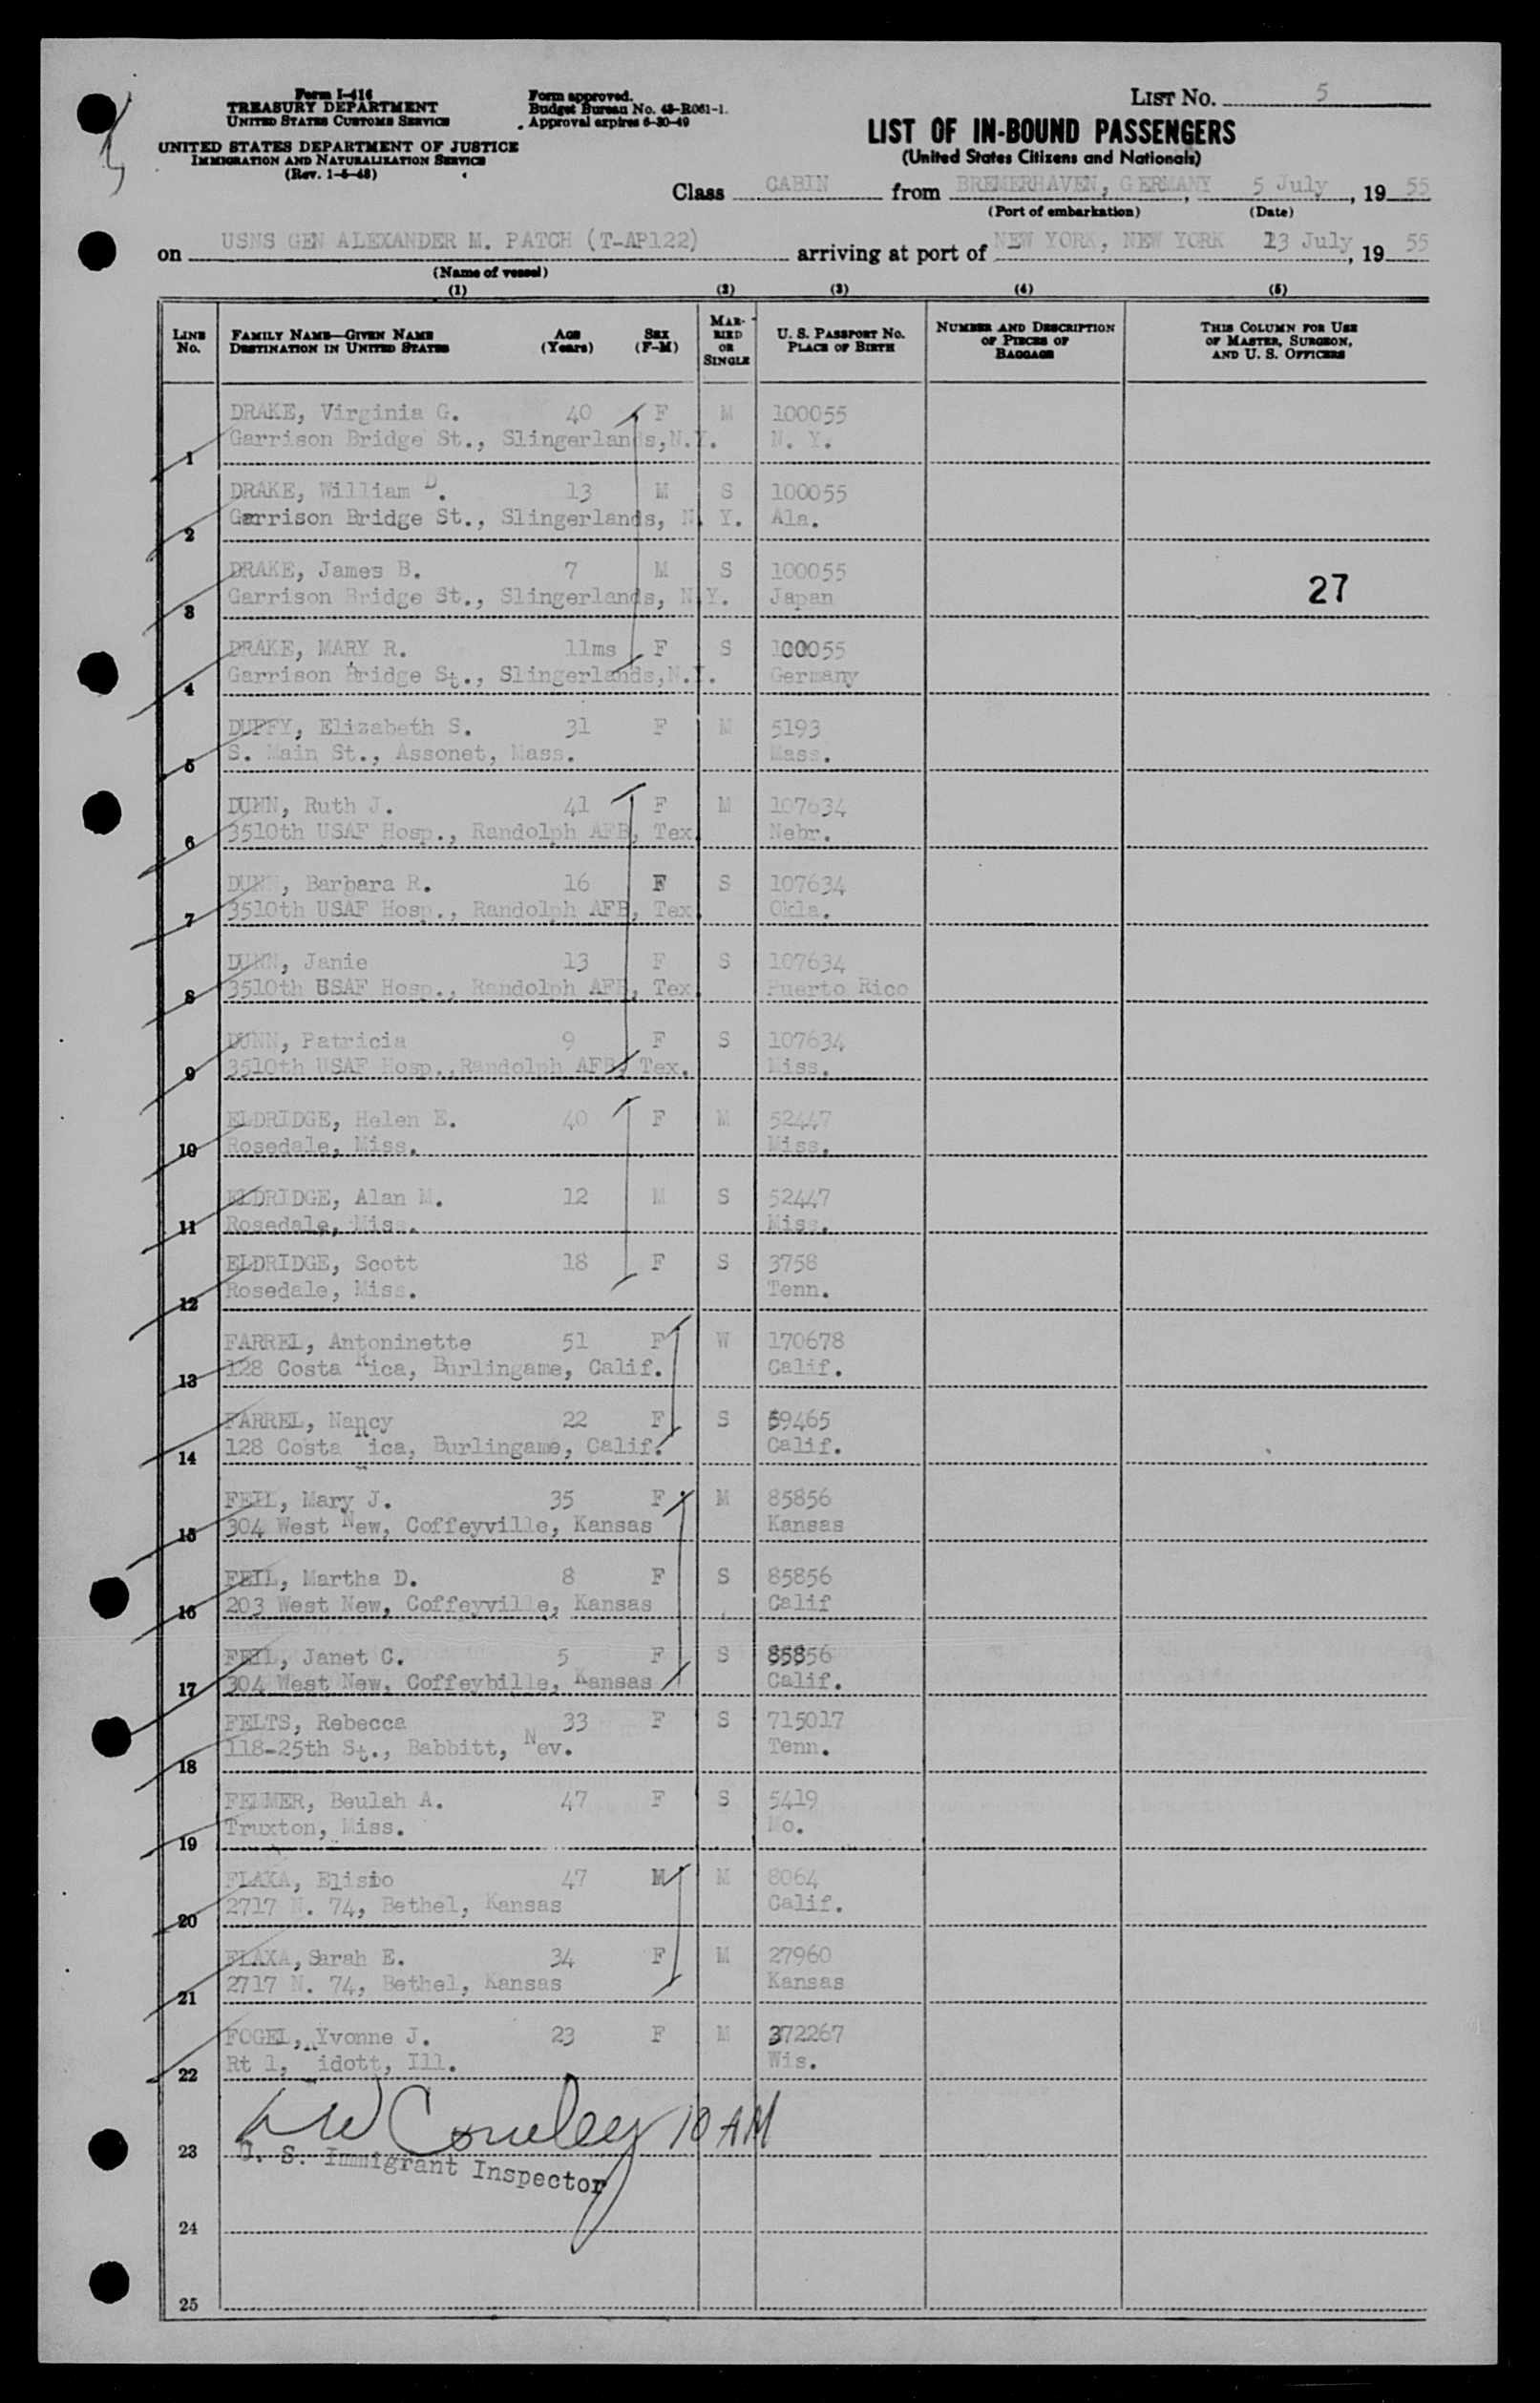 Form I-416
TREASURY DEPARTMENT
UNITED STATES CUSTOMS SERVICE
UNITED STATES DEPARTMENT OF JUSTICE
IMMIGRATION AND NATURALIZATION SERVICE
(Rev. 1-5-48)
Form approved.
Budget Bureau No. 43-R061-1.
Approval expires 6-30-49
LIST NO. 5
LIST OF IN-BOUND PASSENGERS
(United States Citizens and Nationals)
Class CABIN from BREMERHAVEN, GERMANY, 5 July, 19 55
(Port of embarkation) (Date)
on USNS GEN ALEXANDER M. PATCH (T-AP122) arriving at port of NEW YORK, NEW YORK 13 July, 19 55
(Name of vessel)
(1) (2) (3) (4) (5)
LINE NO. FAMILY NAME—GIVEN NAME DESTINATION IN UNITED STATES AGE (Years) SEX (F-M) MARRIED OR SINGLE U. S. PASSPORT NO. PLACE OF BIRTH NUMBER AND DESCRIPTION OF PIECES OF BAGGAGE THIS COLUMN FOR USE OF MASTER, SURGEON, AND U. S. OFFICERS
DRAKE, Virginia G. 40 F M 100055
1 Garrison Bridge St., Slingerlands,N.Y. N. Y.
DRAKE, William D. 13 M S 100055
2 Garrison Bridge St., Slingerlands, N. Y. Ala.
DRAKE, James B. 7 M S 100055 27
3 Garrison Bridge St., Slingerlands, N.Y. Japan
DRAKE, MARY R. 11ms F S 100055
4 Garrison Bridge St., Slingerlands,N.Y. Germany
DUFFY, Elizabeth S. 31 F M 5193
5 S. Main St., Assonet, Mass. Mass.
DUNN, Ruth J. 41 F M 107634
6 3510th USAF Hosp., Randolph AFB, Tex. Nebr.
DUNN, Barbara R. 16 F S 107634
7 3510th USAF Hosp., Randolph AFB, Tex. Okla.
DUNN, Janie 13 F S 107634
8 3510th USAF Hosp., Randolph AFB, Tex. Puerto Rico
DUNN, Patricia 9 F S 107634
9 3510th USAF Hosp.,Randolph AFB, Tex. Miss.
ELDRIDGE, Helen E. 40 F M 52447
10 Rosedale, Miss. Miss.
ELDRIDGE, Alan M. 12 M S 52447
11 Rosedale, Miss. Miss.
ELDRIDGE, Scott 18 F S 3758
12 Rosedale, Miss. Tenn.
FARREL, Antoninette 51 F W 170678
13 128 Costa Rica, Burlingame, Calif. Calif.
FARREL, Nancy 22 F S 59465
14 128 Costa Rica, Burlingame, Calif. Calif.
FEIL, Mary J. 35 F M 85856
15 304 West New, Coffeyville, Kansas Kansas
FEIL, Martha D. 8 F S 85856
16 203 West New, Coffeyville, Kansas Calif
FEIL, Janet C. 5 F S 85856
17 304 West New, Coffeybille, Kansas Calif.
FELTS, Rebecca 33 F S 715017
18 118-25th St., Babbitt, Nev. Tenn.
FEMMER, Beulah A. 47 F S 5419
19 Truxton, Miss. Mo.
FLAXA, Elisio 47 M M 8064
20 2717 N. 74, Bethel, Kansas Calif.
FLAXA, Sarah E. 34 F M 27960
21 2717 N. 74, Bethel, Kansas Kansas
FOGEL, Yvonne J. 23 F M 372267
22 Rt 1, idott, Ill. Wis.
Conley 10 AM
23 U. S. Immigrant Inspector
24
25